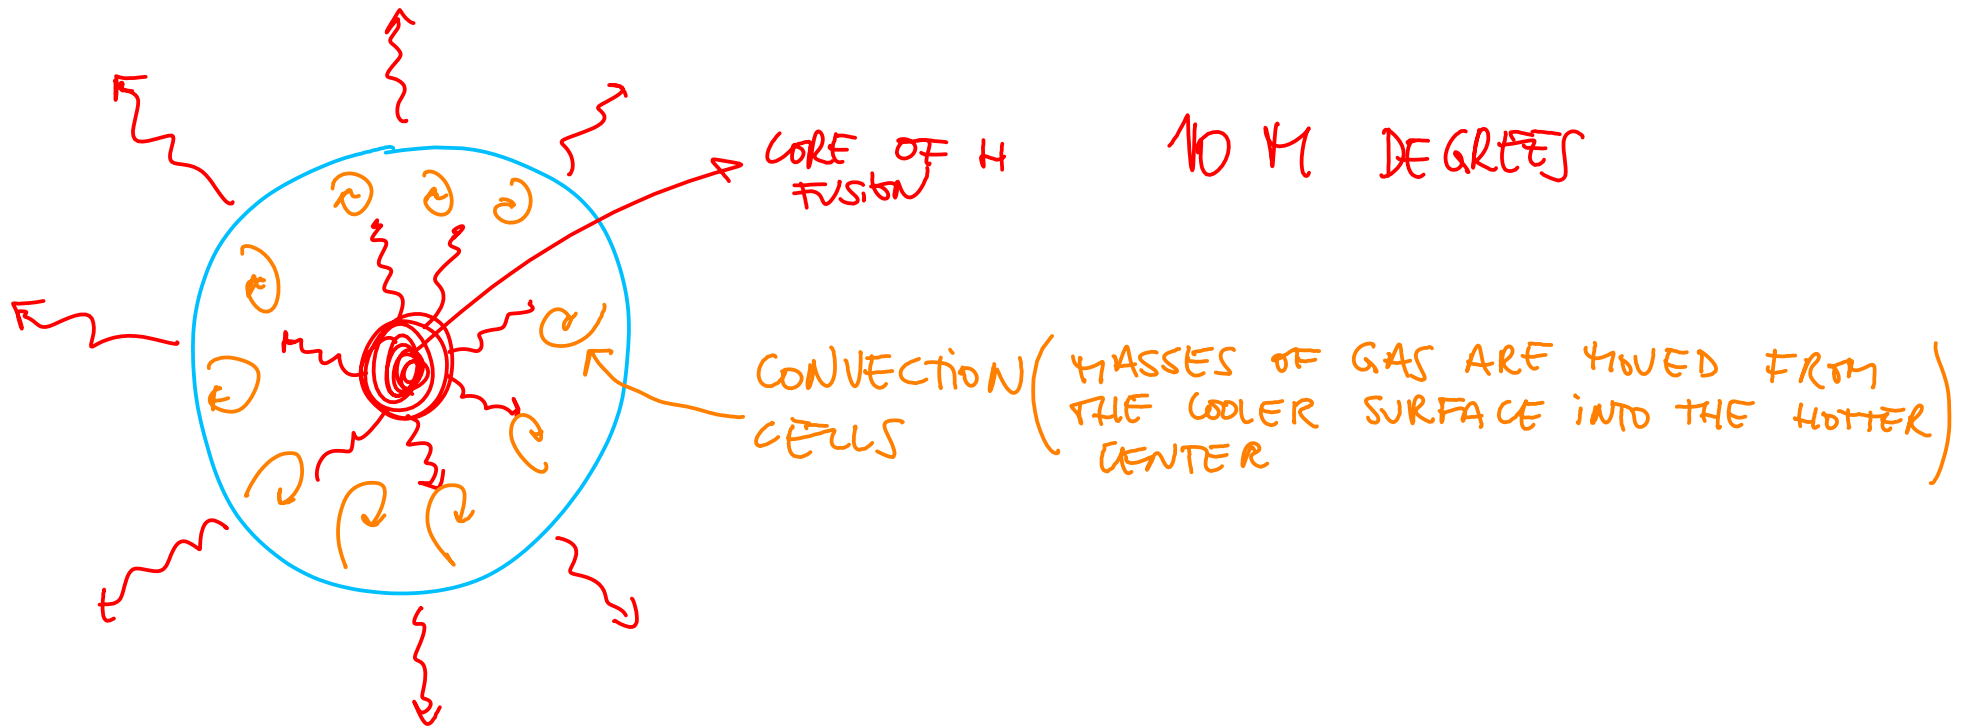 CORE OF H
FUSION
10 M DEGREES
CONVECTION
CELLS
(MASSES OF GAS ARE MOVED FROM
THE COOLER SURFACE INTO THE HOTTER
CENTER)